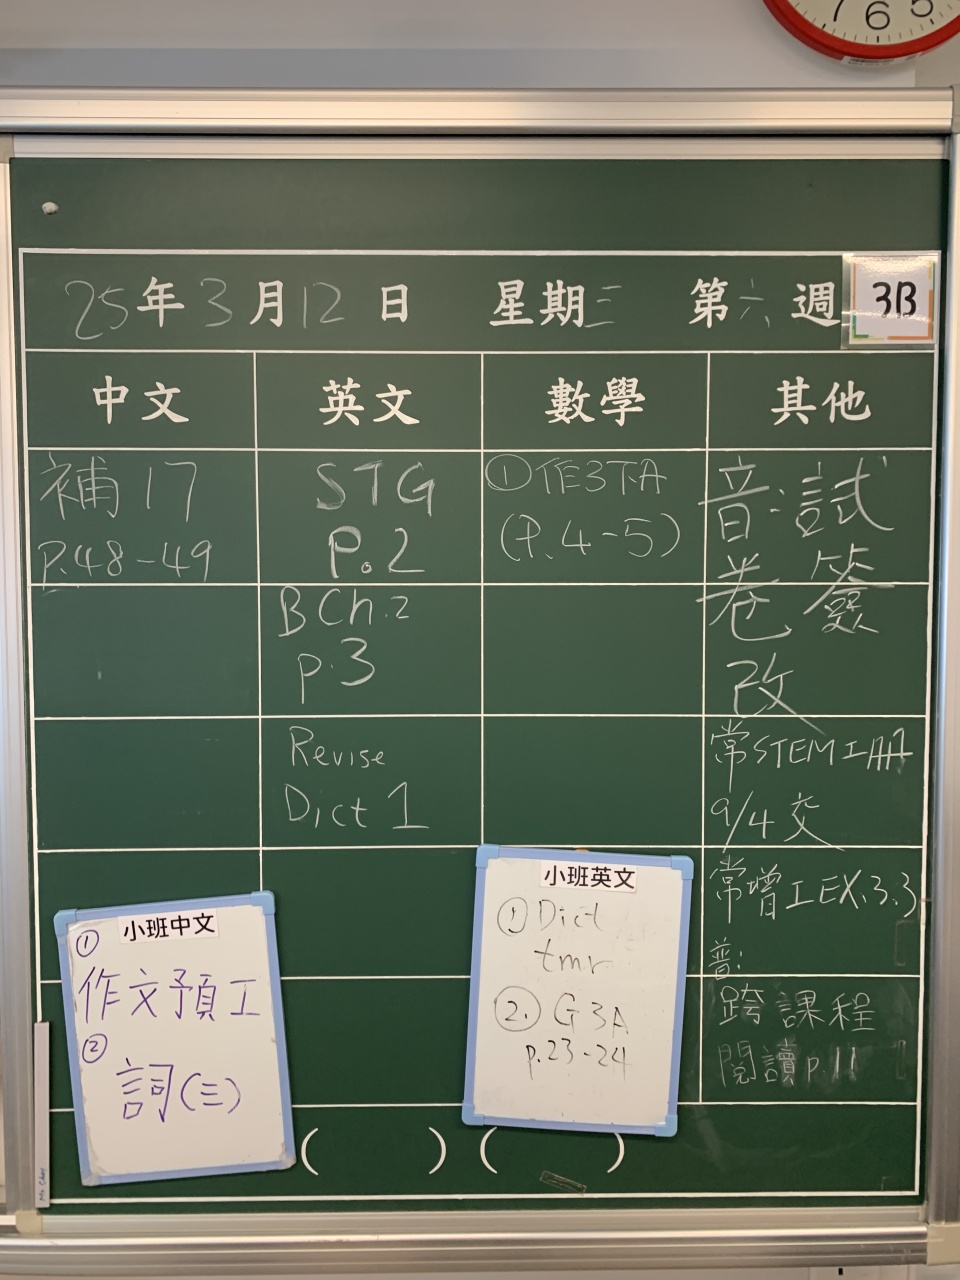 7 6 5
25年3月12日 星期三 第六週 3B
中文 英文 數學 其他
補17
P.48-49
STG
P.2
BCh.2
p.3
Revise
Dict 1
①作3下A
(P.4-5)
音:試
卷簽
改
常STEM工
9/4交
常增工EX.3.3
普:
跨課程
閱讀p.11
小班中文
①
作文預工
②
詞(三)
小班英文
① Dict
tmr
②. G3A
p.23-24
( ) ( )